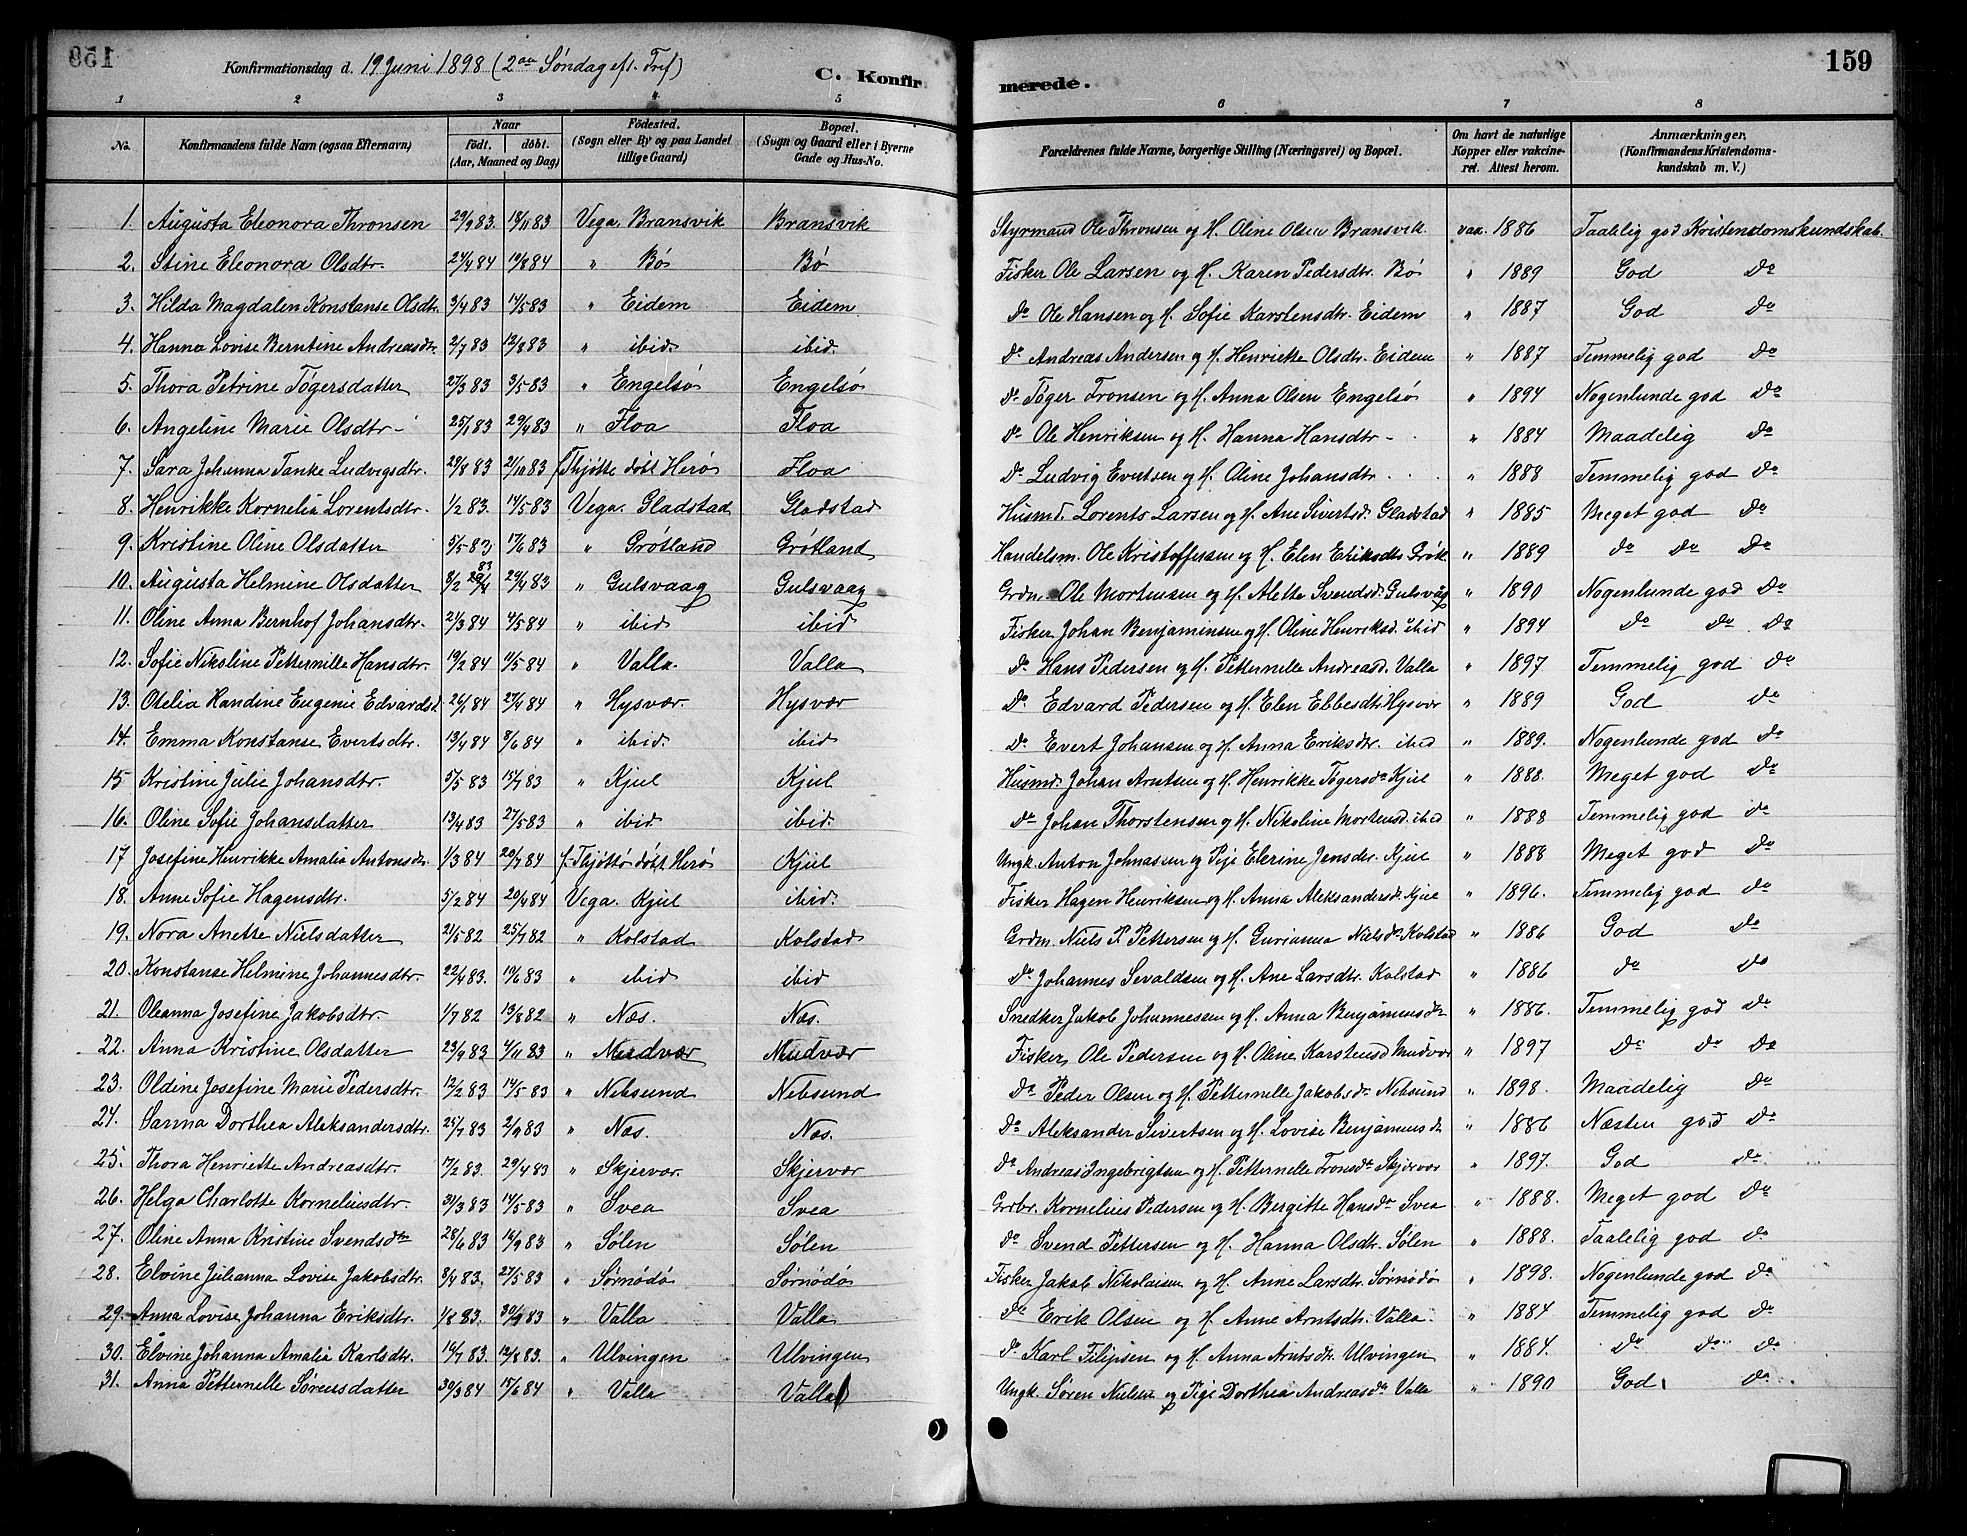 159
Konfirmationsdag d. 19 Juni 1898 (2den Søndag eft. Tref)
C. Konfirmerede.
1 2 3 4 5 6 7 8
No. Konfirmandens fulde Navn (ogsaa Efternavn) Naar født. døbt. (Aar, Maaned og Dag) Fødested. (Sogn eller By og paa Landet tillige Gaard) Bopæl. (Sogn og Gaard eller i Byerne Gade og Hus-No. Forældrenes fulde Navne, borgerlige Stilling (Næringsvei) og Bopæl. Om havt de naturlige Kopper eller vakcineret. Attest herom. Anmærkninger, (Konfirmandens Kristendomskundskab m. V.)
1. Augusta Eleonora Thronsen 29/9 83. 18/11 83 Vega Bransvik Bransvik Styrmand Ole Thronsen og H. Oline Olsen Bransvik vax. 1886 Taalelig god Kristendomskundskab.
2. Stine Eleonora Olsdtr. 24/4 84 10/8 84 " Bø Bø Fisker Ole Larsen og H. Karen Pedersdtr. Bø " 1889 God do
3. Hilda Magdalen Konstanse Olsdtr. 3/4 83 14/5 83 " Eidem Eidem do Ole Hansen og H. Sofie Karstensdtr. Eidem " 1887 God do
4. Hanna Lovise Berntine Andreasdtr 2/7 83 12/8 83 " ibid. ibid. do Andreas Andersen og H. Henriette Olsdtr. Eidem " 1887 Temmelig god do
5. Thora Petrine Tøgersdatter 27/3 83 3/5 83 " Engelsø Engelsø do Tøger Tronsen og H. Anna Olsen Engelsø " 1894 Nogenlunde god do
6. Angeline Marie Olsdtr. 25/1 83 29/4 83 " Floa Floa do Ole Henriksen og H. Hanna Hansdtr - " 1884 Maadelig do
7. Sara Johanna Tanke Ludvigsdtr. 29/8 83 21/10 83 f Thjøtte døbt Herø Floa do Ludvig Evertsen og H. Oline Johansdtr " 1888 Temmelig god do
8. Henrikke Kornelia Lorentsdtr. 1/2 83. 14/5 83 Vega. Gladstad Gladstad Husmd. Lorents Larsen og H. Ane Sivertsd. Gladstad " 1885 Meget god do
9. Kristine Oline Olsdatter 3/5 83 17/6 83 " Grøtland Grøtland Handelsm. Ole Kristoffersen og H. Elen Eriksdtr Grøtl. " 1889 do do do
10. Augusta Helmine Olsdatter 8/2 83 29/4 83 " Gulsvaag Gulsvaag Grdm. Ole Mortensen og H. Alette Svendsd. Gulsvåg " 1890 Nogenlunde god do
11. Oline Anna Bernhof Johansdtr. 21/3 84 4/5 84 " ibid ibid Fisker Johan Benjaminsen og H. Oline Henriksd. ibid " 1894 do do do
12. Sofie Nikoline Petternille Hansdtr. 19/2 84 11/5 84 " Valla. Valla do Hans Pedersen og H. Petternelle Andreasd. Valla " 1897 Temmelig god do
13. Otelia Randine Eugenie Edvardsd. 26/1 84 27/4 84 " Hysvær. Hysvær do Edvard Pedersen og H. Elen Ebbesdtr Hysvær " 1889 God do
14. Emma Konstanse Evertsdtr. 13/4 84 8/6 84 " ibid. ibid do Evert Johansen og H. Anna Eriksdtr. ibid " 1889. Nogenlunde god do
15 Kristine Julie Johansdtr. 5/5 83 15/7 83 " Kjul Kjul Husmd. Johan Arntsen og H. Henrikke Tøgersdtr Kjul " 1888. Meget god do
16. Oline Sofie Johansdatter 13/4 83 27/5 83 " ibid ibid. do Johan Thorstensen og H. Nikoline Mortensd. ibid " 1888 Temmelig god do
17 Josefine Henrikke Amalia Antonsdr. 1/3 84 20/7 84 f. Thjøttø døbt Herø Kjul Ungk. Anton Johnasen og Pige Elerine Jensdtr. Kjul " 1888 Meget god do
18. Anne Sofie Hagensdtr. 5/2 84 20/4 84 Vega. Kjul ibid. Fisker Hagen Henriksen og H. Anna Aleksandersd. Kjul " 1896. Temmelig god do
19. Nora Anette Nielsdatter 21/5 82 25/7 82 " Kolstad Kolstad Grdm. Niels P. Pettersen og H. Gurianna Nielsdr Kolstad " 1886 God do
20. Konstanse Helmine Johannesdtr. 22/4 83. 10/6 83 " ibid ibid do Johannes Sevaldsen og H. Ane Larsdtr. Kolstad " 1886 do do
21. Oleanna Josefine Jakobsdtr. 1/7 82 13/8 82 " Næs. Næs. Snedker Jakob Johannesen og H. Anna Benjaminsdr " 1886. Temmelig god do
22. Anna Kristine Olsdatter 23/9 83 4/11 83 " Mudvær Mudvær Fisker Ole Pedersen og H. Oline Karstensd Mudvær " 1897 do do do
23. Oldine Josefine Marie Pedersdtr. 12/2 83 14/5 83 " Nebsund Nebsund do Peder Olsen og H. Petternelle Jakobsdr. Nebsund " 1898. Maadelig do
24. Sanna Dorthea Aleksandersdtr. 25/7 83 2/9 83 " Næs. Næs. do Aleksander Sivertsen og H. Lovise Benjaminsdr " 1886 Næsten god do
25. Thora Henriette Andreasdtr. 17/2 83. 29/4 83 " Skjervær. Skjervær do Andreas Ingebrigtsen og H. Petternelle Tronsdr Skjærvær " 1897. God do
26. Helga Charlotte Korneliusdtr. 31/3 83 14/5 83 " Svea Svea Grbr. Kornelius Pedersen og H. Bergitte Hansdr Svea " 1888. Meget god do
27. Oline Anna Kristine Svendsdtr 28/6 83 16/9 83 " Sølen Sølen do Svend Pettersen og H. Hanna Olsdtr. Sølen " 1888. Taalelig god do
28. Elvine Julianna Lovise Jakobsdtr. 3/4 83. 27/5 83 " Sørnødø Sørnødø Fisker Jakob Nikolaisen og H. Anne Larsdtr. Sørnødø " 1898. Nogenlunde god do
29. Anna Lovise Johanna Eriksdtr. 1/8 83. 30/9 83 " Valla Valla do Erik Olsen og H. Anne Arntsdtr. Valla. " 1884 Temmelig god do
30. Elvine Johanna Amalia Karlsdtr. 16/7 83. 12/8 83. " Ulvingen Ulvingen do Karl Filipsen og H. Anna Arntsdr. Ulvingen " 1884. do do do
31. Anna Petternelle Sørensdatter 30/3 84 15/6 84 " Valla Valla Ungk. Søren Nielsen og Pige Dorthea Andreasdr Valla " 1890 God do